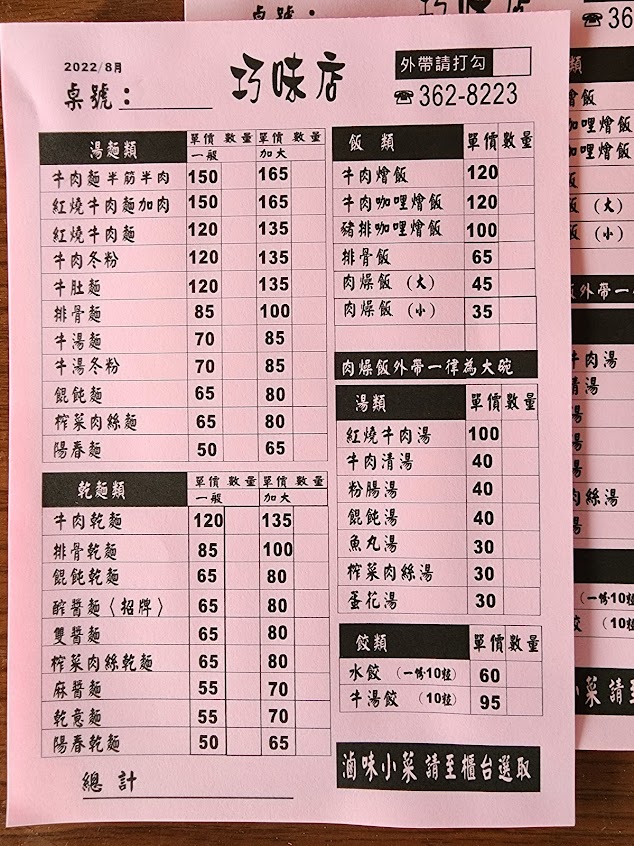 2022/8月
桌號：
巧味店
外帶請打勾
☎362-8223
湯麵類 單價 數量 單價 數量
一般 加大
牛肉麵 半筋半肉 150 165
紅燒牛肉麵加肉 150 165
紅燒牛肉麵 120 135
牛肉冬粉 120 135
牛肚麵 120 135
排骨麵 85 100
牛湯麵 70 85
牛湯冬粉 70 85
餛飩麵 65 80
榨菜肉絲麵 65 80
陽春麵 50 65
乾麵類 單價 數量 單價 數量
一般 加大
牛肉乾麵 120 135
排骨乾麵 85 100
餛飩乾麵 65 80
醡醬麵〈招牌〉 65 80
雙醬麵 65 80
榨菜肉絲乾麵 65 80
麻醬麵 55 70
乾意麵 55 70
陽春乾麵 50 65
總計
飯類 單價 數量
牛肉燴飯 120
牛肉咖哩燴飯 120
豬排咖哩燴飯 100
排骨飯 65
肉燥飯（大） 45
肉燥飯（小） 35
肉燥飯外帶一律為大碗
湯類 單價 數量
紅燒牛肉湯 100
牛肉清湯 40
粉腸湯 40
餛飩湯 40
魚丸湯 30
榨菜肉絲湯 30
蛋花湯 30
餃類 單價 數量
水餃（一份10粒） 60
牛湯餃（10粒） 95
滷味小菜請至櫃台選取